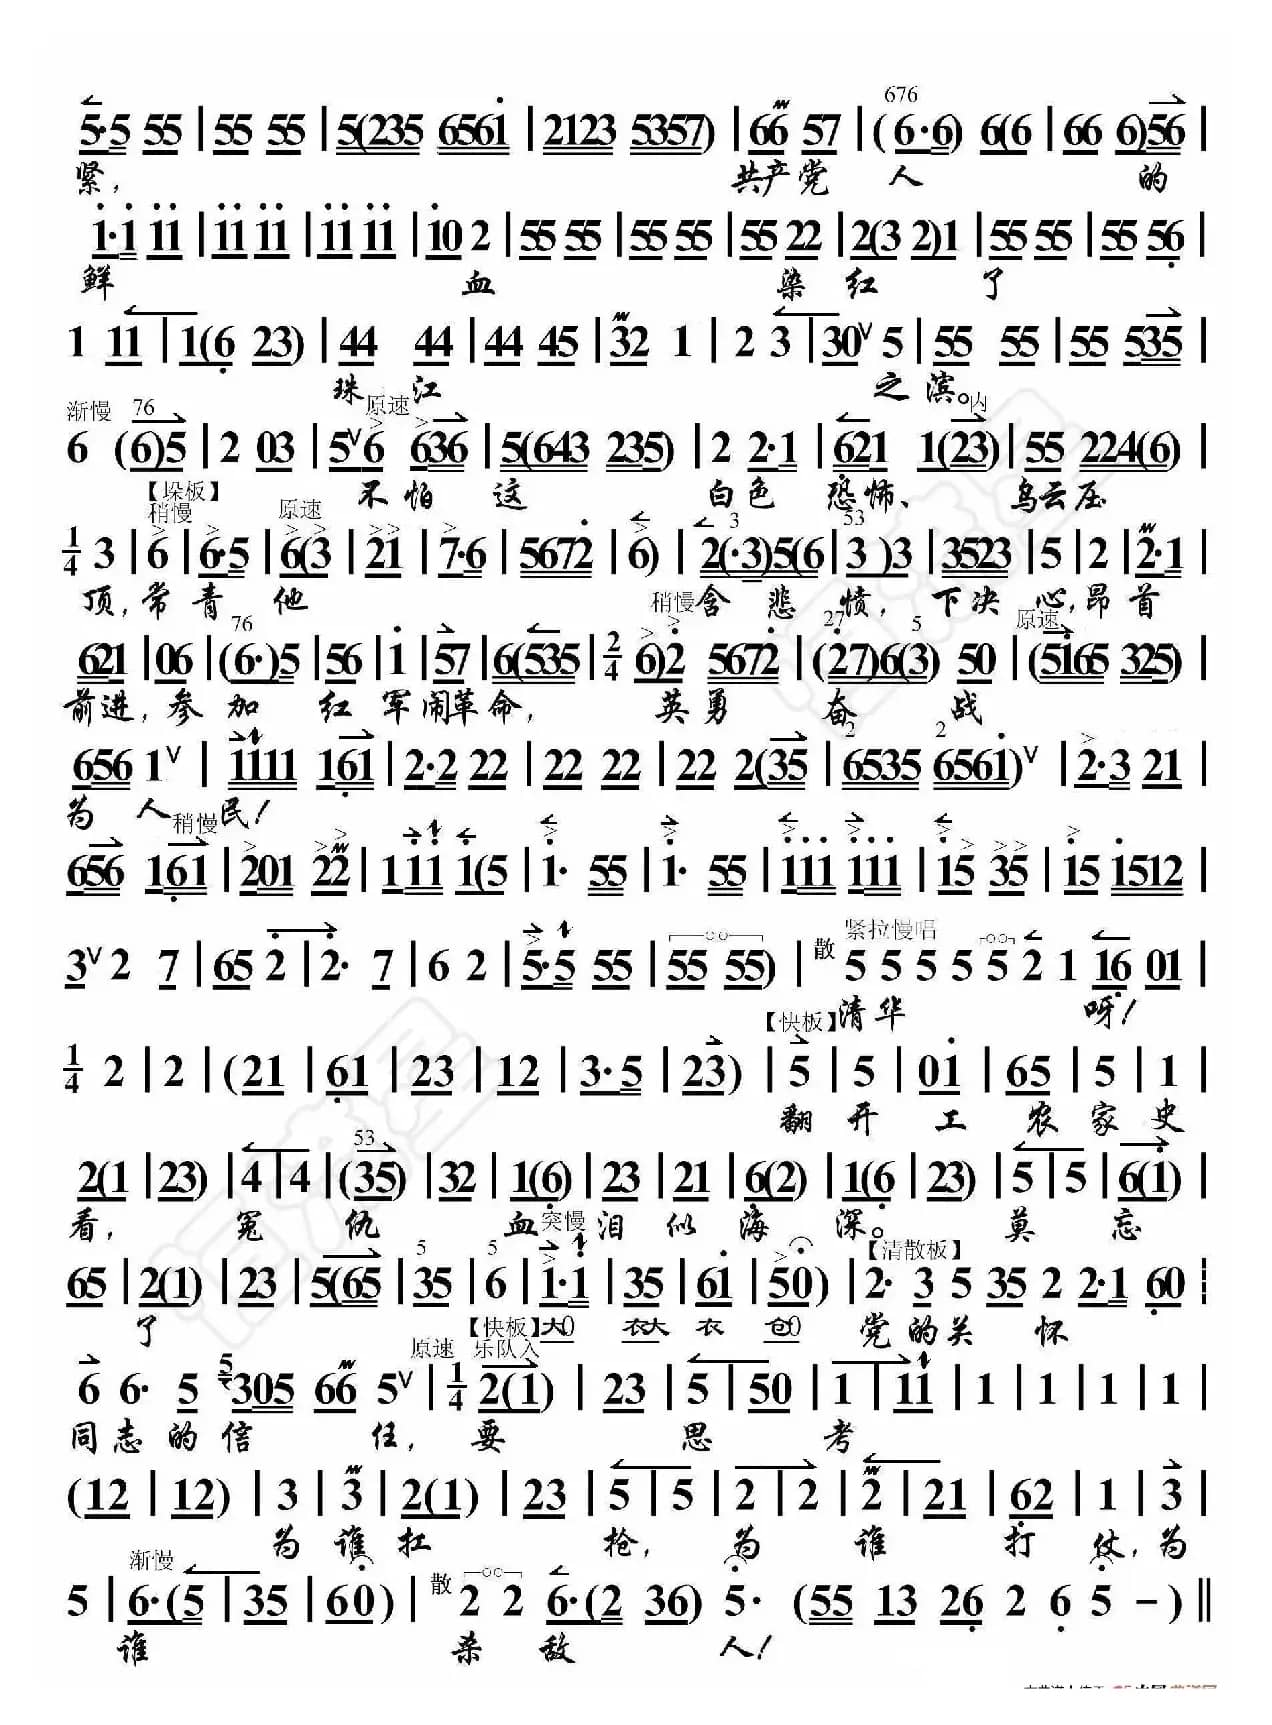 676
5·5 55 | 55 55 | 5(235 6561 | 2123 5357) | 66 57 | (6·6) 6(6 | 66 6)56 |
紧， 共产党 人 的
1·1 11 | 11 11 | 11 11 | 10 2 | 55 55 | 55 55 | 55 22 | 2(3 2)1 | 55 55 | 55 56 |
鲜 血 染 红 了
1 11 | 1(6 23) | 44 44 | 44 45 | 32 1 | 2 3 | 30∨5 | 55 55 | 55 535 |
珠 江 之 滨。
渐慢 76 原速 内
6 (6)5 | 2 03 | 5∨6 636 | 5(643 235) | 2 2·1 | 621 1(23) | 55 224(6) |
【垛板】 不 怕 这 白 色 恐 怖、 乌 云 压
稍慢 原速 3 53
1/4 3 | 6 | 6·5 | 6(3 | 21 | 7·6 | 5672 | 6) | 2(·3)5(6 | 3 )3 | 3523 | 5 | 2 | 2·1 |
顶，常 青 他 稍慢 含 悲 愤， 下 决 心，昂 首
76 27 5 原速
621 | 06 | (6·)5 | 56 | 1 | 57 | 6(535 | 2/4 6)2 5672 | (27)6(3) 50 | (5165 325) |
前进，参 加 红 军 闹革命， 英 勇 奋 战
2 2
656 1∨ | 1111 161 | 2·2 22 | 22 22 | 22 2(35 | 6535 6561)∨ | 2·3 21 |
为 人 民！
稍慢
656 161 | 201 22 | 111 1(5 | 1· 55 | 1· 55 | 111 111 | 15 35 | 15 1512 |
紧拉慢唱
3∨2 7 | 65 2 | 2· 7 | 6 2 | 5·5 55 | 55 55) | 散 5 5 5 5 5 2 1 16 01 |
【快板】 清 华 呀！
1/4 2 | 2 | (21 | 61 | 23 | 12 | 3·5 | 23) | 5 | 5 | 01 | 65 | 5 | 1 |
翻 开 工 农 家 史
53
2(1 | 23) | 4 | 4 | (35) | 32 | 1(6) | 23 | 21 | 6(2) | 1(6 | 23) | 5 | 5 | 6(1) |
看， 冤 仇 血 泪 似 海 深。 莫 忘
5 5 突慢 【清散板】
65 | 2(1) | 23 | 5(65 | 35 | 6 | 1·1 | 35 | 61 | 50) | 2· 3 5 35 2 2·1 60
了 【快板】 大0 衣大 衣 仓0 党 的 关 怀
原速 乐队入
6 6· 5 5 305 66 5∨ | 1/4 2(1) | 23 | 5 | 50 | 1 | 11 | 1 | 1 | 1 | 1
同 志 的 信 任， 要 思 考
(12 | 12) | 3 | 3 | 2(1) | 23 | 5 | 5 | 2 | 2 | 2 | 21 | 62 | 1 | 3 |
为 谁 扛 枪， 为 谁 打 仗，为
渐慢
5 | 6·(5 | 35 | 60) | 散 2 2 6·(2 36) 5· (55 13 26 2 6 5 － ) ‖
谁 杀 敌 人！